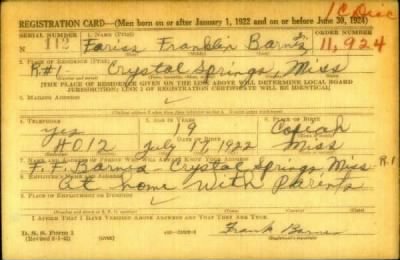 1C Disc
REGISTRATION CARD—(Men born on or after January 1, 1922 and on or before June 30, 1924)
SERIAL NUMBER 1. NAME (Print) ORDER NUMBER
N 112 Fariss Franklin Barnes Jr. 11,924
2. PLACE OF RESIDENCE (Print)
R#1 Crystal Springs, Miss
[THE PLACE OF RESIDENCE GIVEN ON THE LINE ABOVE WILL DETERMINE LOCAL BOARD
JURISDICTION; LINE 2 OF REGISTRATION CERTIFICATE WILL BE IDENTICAL]
3. MAILING ADDRESS
4. TELEPHONE 5. AGE IN YEARS 6. PLACE OF BIRTH
yes 19 Copiah
DATE OF BIRTH
4012 July 17, 1922 Miss
7. NAME AND ADDRESS OF PERSON WHO WILL ALWAYS KNOW YOUR ADDRESS
F. F. Barnes - Crystal Springs, Miss R.1
8. EMPLOYER'S NAME AND ADDRESS
At home with Parents
9. PLACE OF EMPLOYMENT OR BUSINESS
I AFFIRM THAT I HAVE VERIFIED ABOVE ANSWERS AND THAT THEY ARE TRUE.
D. S. S. Form 1
(over)
Frank Barnes